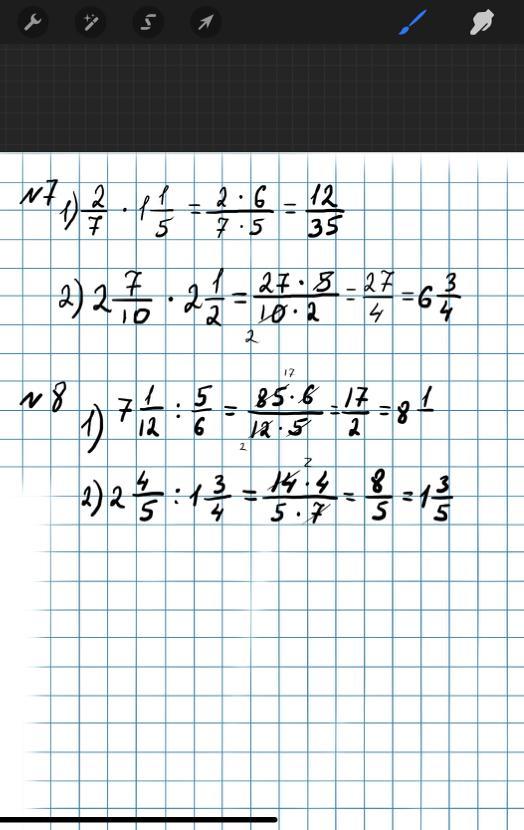 №7 1) 2/7 · 1 1/5 = 2 · 6 / 7 · 5 = 12/35
2) 2 7/10 · 2 1/2 = 27 · 5 / 10 · 2 = 27/4 = 6 3/4
2
17
№8 1) 7 1/12 : 5/6 = 85 · 6 / 12 · 5 = 17/2 = 8 1/
2
2
2) 2 4/5 : 1 3/4 = 14 · 4 / 5 · 7 = 8/5 = 1 3/5